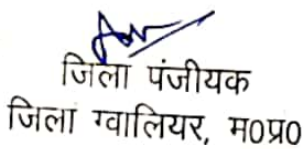 जिला पंजीयक
जिला ग्वालियर, म0प्र0